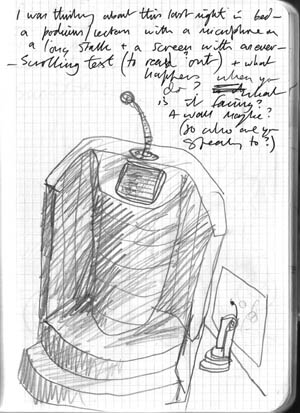 I was thinking about this last night in bed -
a podium/lectern with a microphone on
a long stalk + a screen with an ever-
-scrolling text (to read out) + what
happens when you
do? what
is it facing?
A wall maybe?
(so who are you
speaking to?)